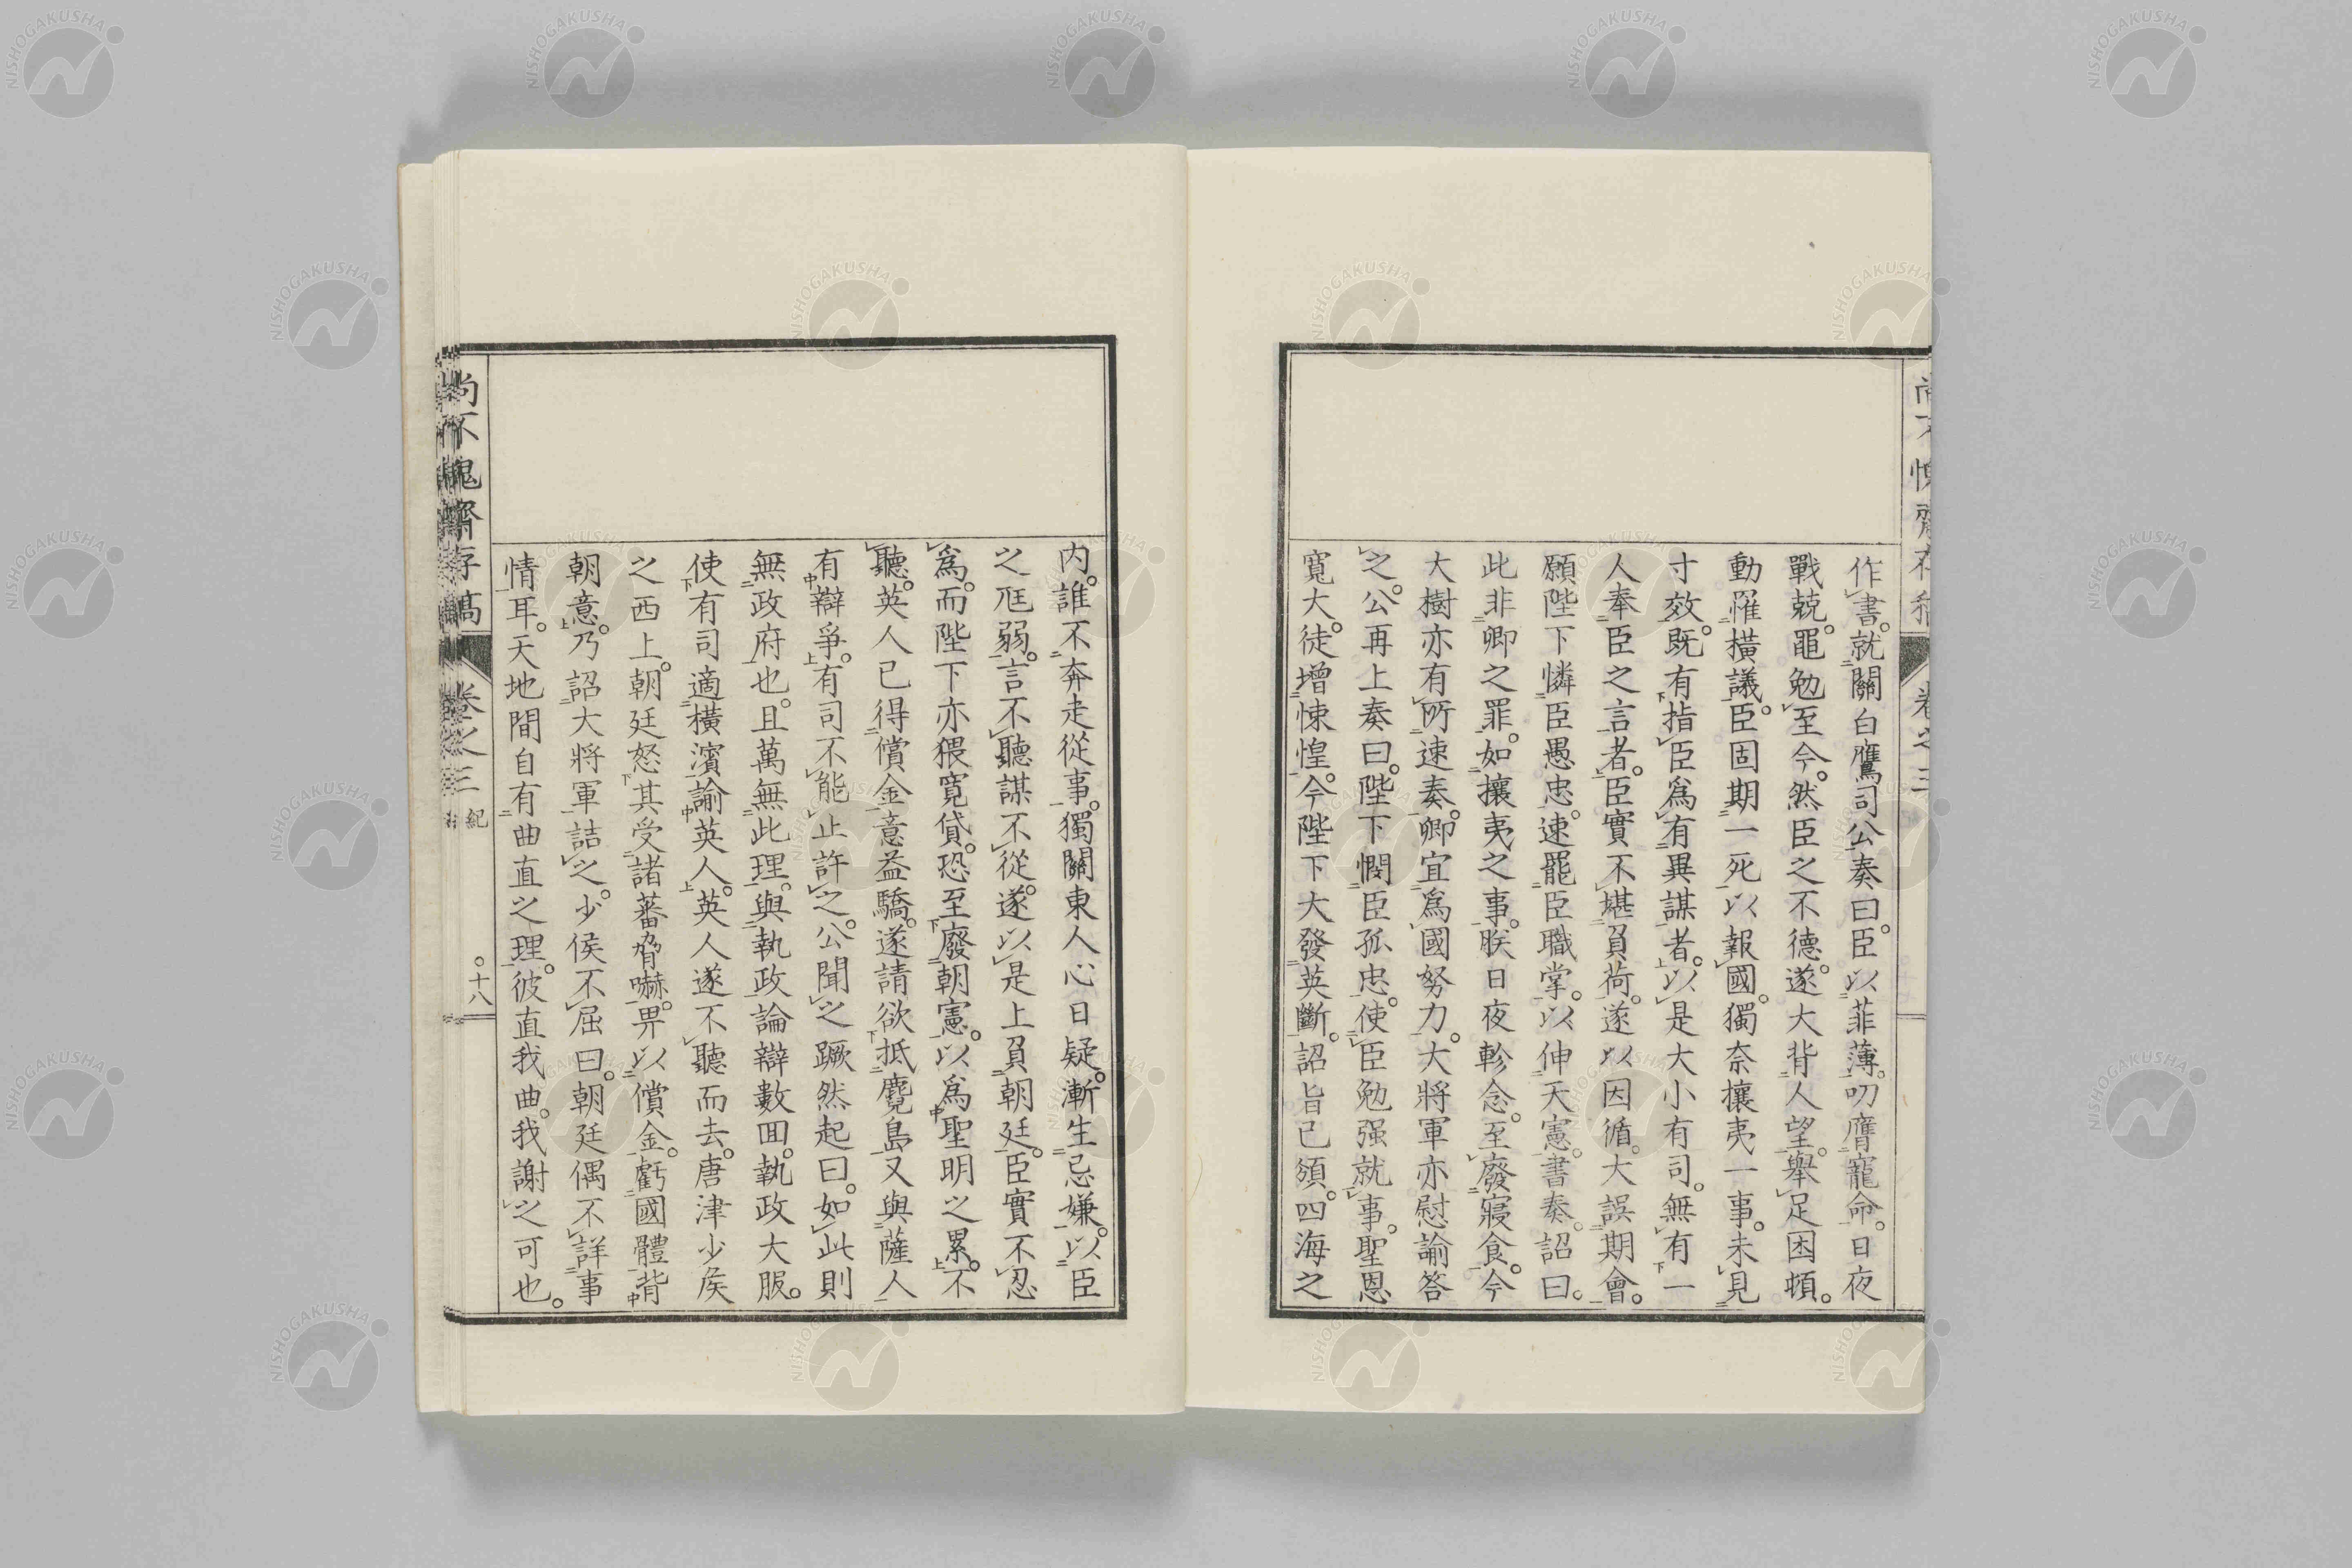 作書。就關白鷹司公奏曰。臣以菲薄。叨膺寵命。日夜
戰兢。黽勉至今。然臣之不德。遂大背人望。舉足困頓。
動罹橫議。臣固期一死以報國。獨奈攘夷一事。未見
寸效。既有指臣爲有異謀者。以是大小有司。無有一
人奉臣之言者。臣實不堪負荷。遂以因循。大誤期會。
願陛下憐臣愚忠。速罷臣職掌。以伸天憲。書奏。詔曰。
此非卿之罪。如攘夷之事。朕日夜軫念。至廢寢食。今
大樹亦有所速奏。卿宜爲國努力。大將軍亦慰諭答
之。公再上奏曰。陛下憫臣孤忠。使臣勉强就事。聖恩
寬大。徒增悚惶。今陛下大發英斷。詔旨已頒。四海之
内。誰不奔走從事。獨關東人心日疑。漸生忌嫌。以臣
之尫弱。言不聽謀不從。遂以是上負朝廷。臣實不忍
爲。而陛下亦猥寬貸。恐至廢朝憲。以爲聖明之累。不
聽。英人已得償金。意益驕。遂請欲抵麑島又與薩人
有辯爭。有司不能止許之。公聞之蹶然起曰。如此則
無政府也。且萬無此理。與執政論辯數回。執政大服。
使有司適橫濱諭英人。英人遂不聽而去。唐津少侯
之西上。朝廷怒其受諸蕃脅嚇。畀以償金。虧國體背
朝意。乃詔大將軍詰之。少侯不屈曰。朝廷偶不詳事
情耳。天地間自有曲直之理。彼直我曲。我謝之可也。
尚不愧齋存稿
卷之三
紀
十八